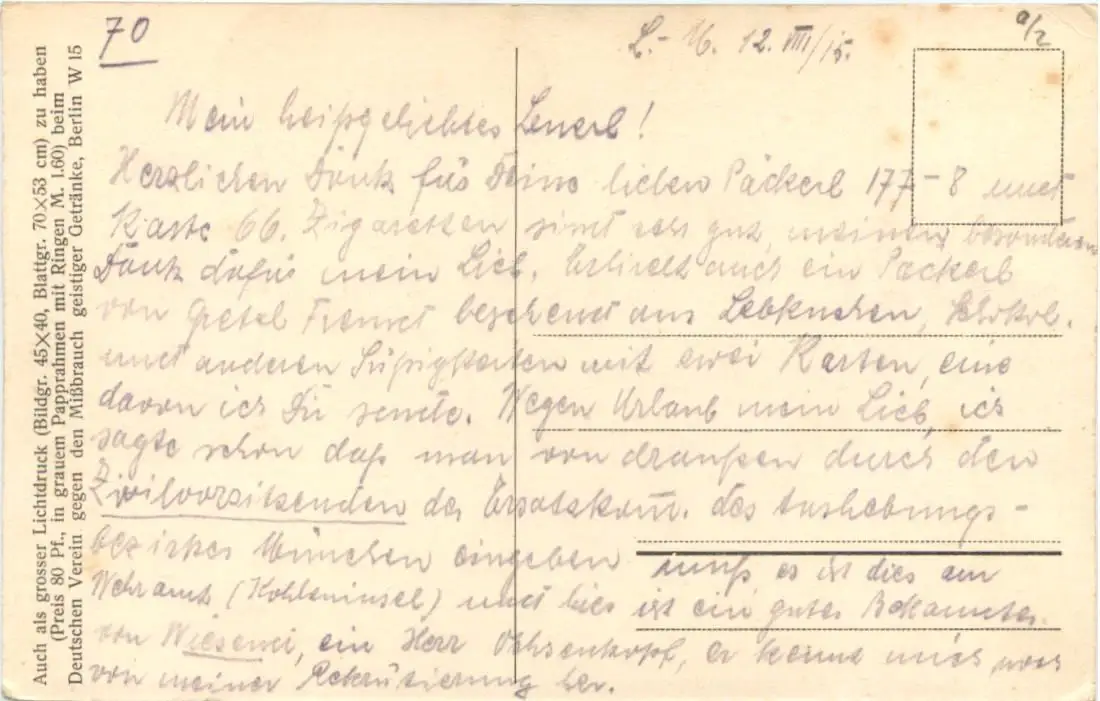 70
L.- M. 12. VIII/15.
a/2
Mein heißgeliebtes Lenerl!
Herzlichen Dank für Deine lieben Päckerl 177-8 und
Karte 66. Zigaretten sind sehr gut meinen besonderen
Dank dafür mein Lieb. Erhielt auch ein Packerl
von Gretel bestehend aus Lebkuchen, Schokol.
und anderen Süßigkeiten mit zwei Karten, eine
davon ich Dir sende. Wegen Urlaub mein Lieb, ich
sagte schon daß man von draußen durch den
Zivilvorsitzenden der Ersatzkom. des Aushebungs-
bezirkes München eingeben muß es ist dies am
Wehramt (Kohleninsel) und hies ist ein guter Bekannter
von, ein Herr Ochsenkopf, er kennt mich noch
von meiner Rekrutierung her.
Auch als grosser Lichtdruck (Bildgr. 45×40, Blattgr. 70×53 cm) zu haben
(Preis 80 Pf., in grauem Papprahmen mit Ringen M. 1.60) beim
Deutschen Verein gegen den Mißbrauch geistiger Getränke, Berlin W 15